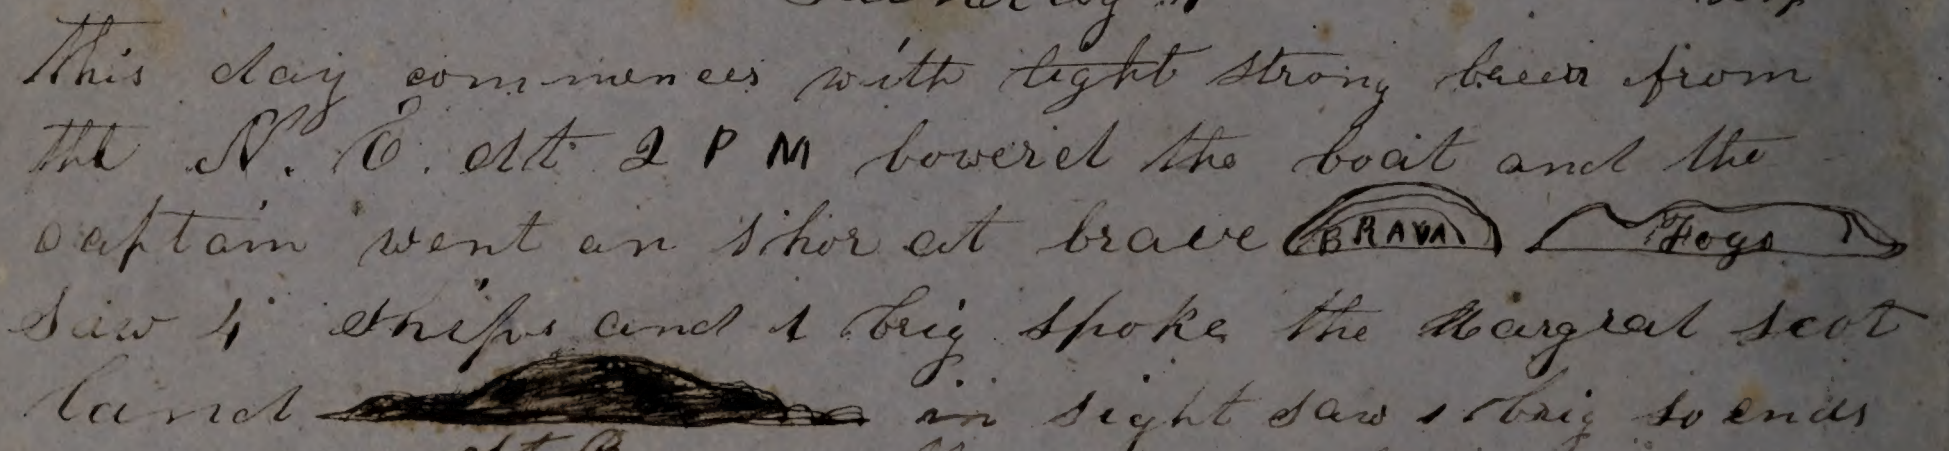 this day commences with light strong breeis from
the N. E. At 2 P M lowered the boat and the
captain went an shor at brave BRAVA Fogo
Saw 4 ships and 1 brig spoke the Margret scot
land in sight saw 1 brig so ends